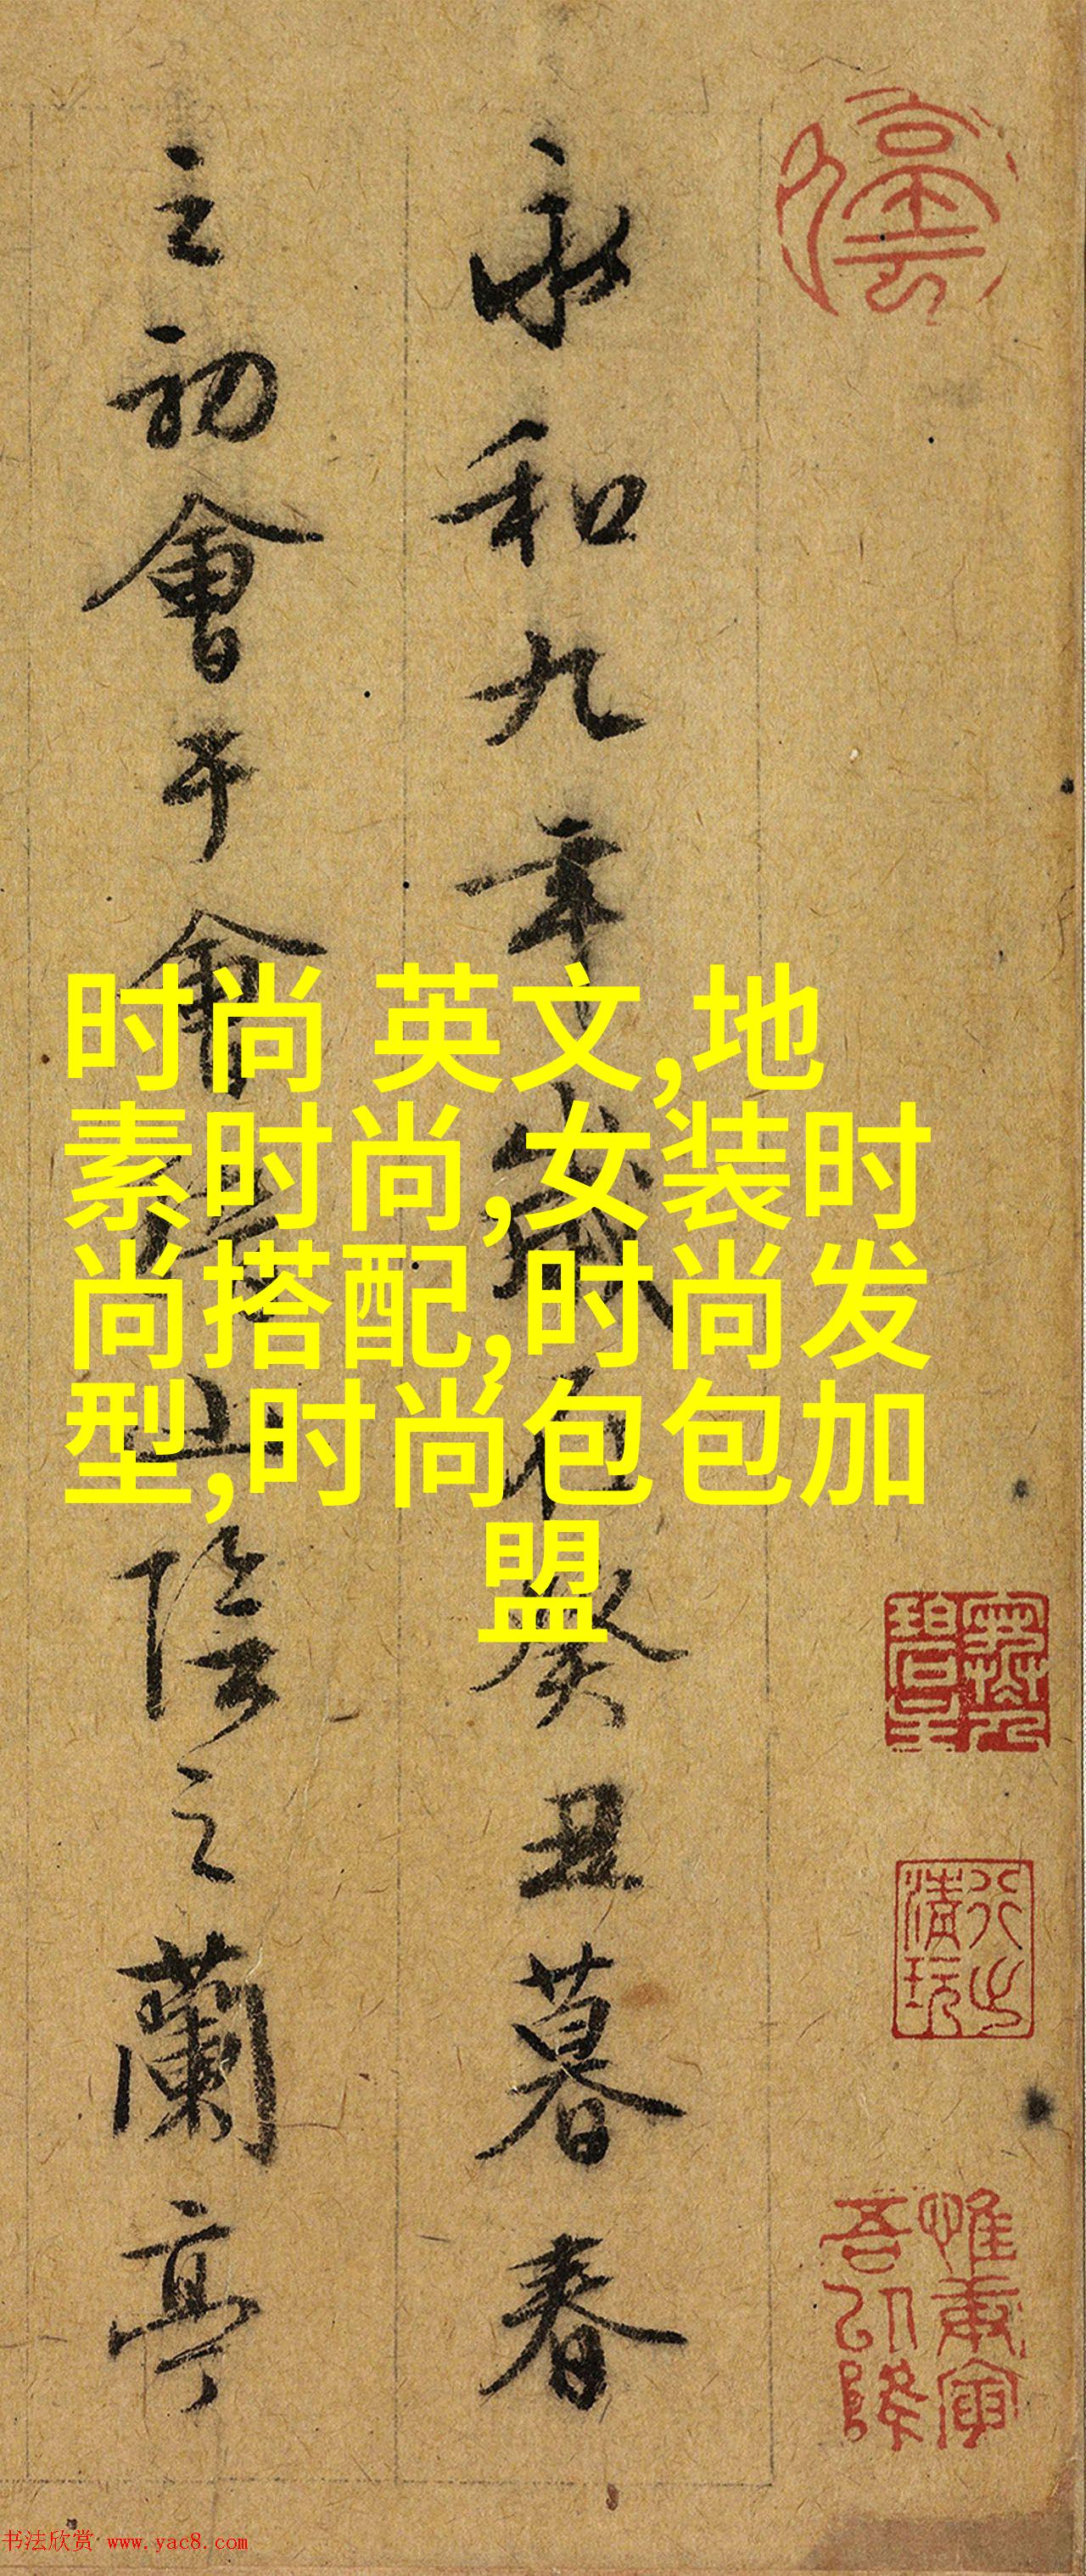 时尚 英文,地
素时尚,女装时
尚搭配,时尚发
型,时尚包包加
盟
永和九年歲在癸丑暮春
之初會于會稽山陰之蘭亭
惟庚寅吾以降
书法欣赏 www.yac8.com